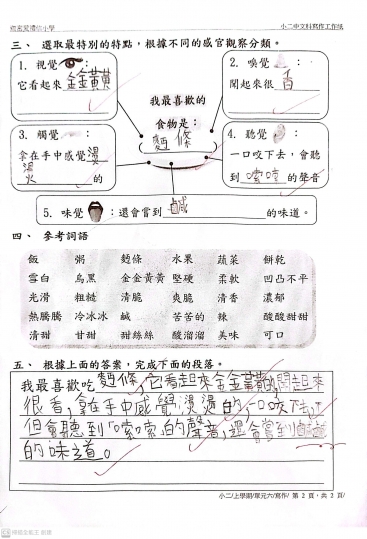 小二中文科寫作工作紙
三、選取最特別的特點，根據不同的感官觀察分類。
1. 視覺：
它看起來金金黃黃
2. 嗅覺：
聞起來很香
我最喜歡的
食物是：
麵條
3. 觸覺：
拿在手中感覺燙
燙的
4. 聽覺：
一口咬下去，會聽
到嗦嗦的聲音
5. 味覺：還會嘗到鹹的味道。
四、參考詞語
飯 粥 麪條 水果 蔬菜 餅乾
雪白 烏黑 金金黃黃 堅硬 柔軟 凹凸不平
光滑 粗糙 清脆 爽脆 清香 濃郁
熱騰騰 冷冰冰 鹹 苦苦的 辣 酸酸甜甜
清甜 甘甜 甜絲絲 酸溜溜 美味 可口
五、根據上面的答案，完成下面的段落。
我最喜歡吃麵條，它看起來金金黃黃的，聞起來
很香，拿在手中感覺燙燙的，一口咬下去，
但會聽到嗦嗦的聲音，還會嘗到鹹鹹
的味道。
小二/上學期/單元六/寫作/ 第 2 頁，共 2 頁/